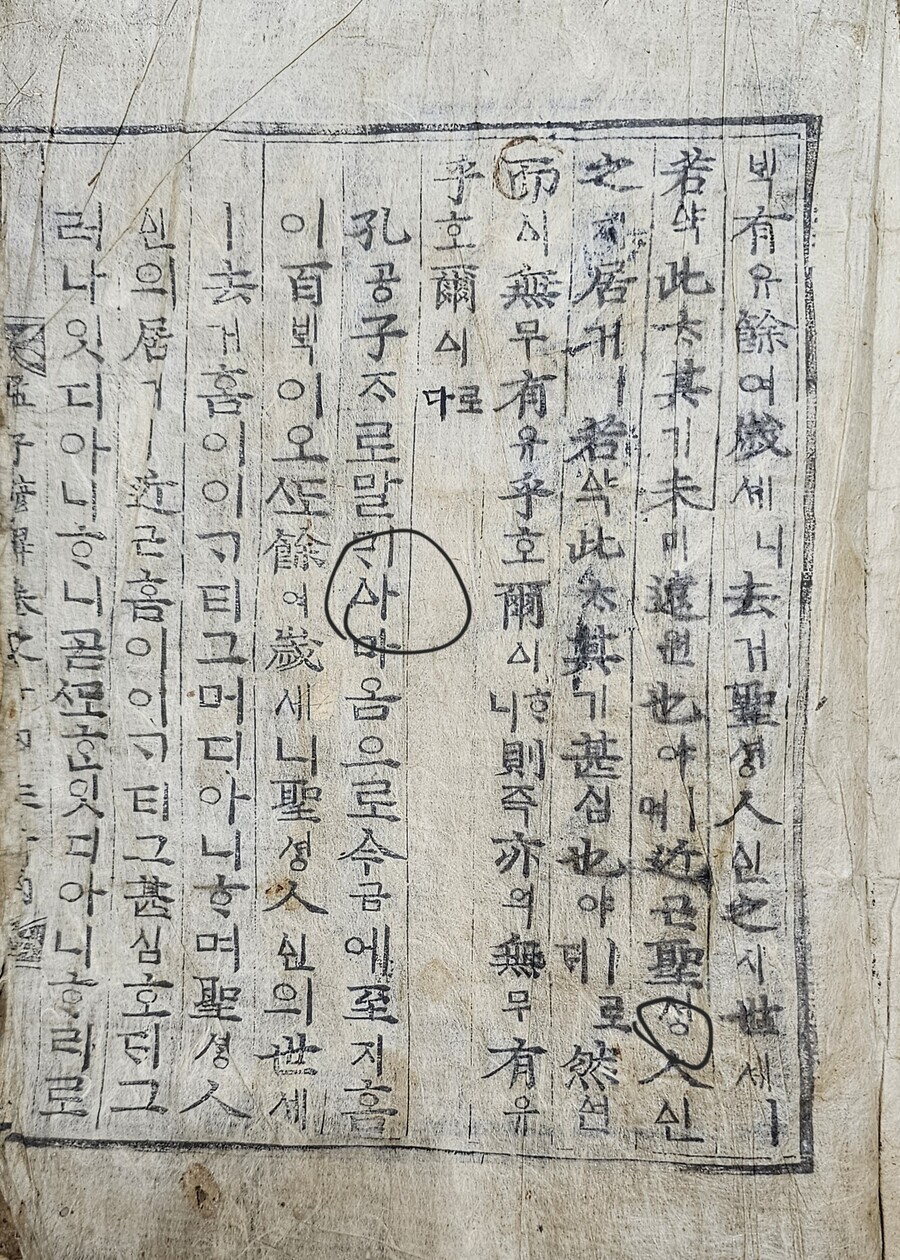 ᄇᆡᆨ有유餘여歲셰니去거聖셩人ᅀᅵᆫ之지世셰ㅣ
若약此ᄎᆞ其기未미遠원也야ㅣ며近근聖셩人ᅀᅵᆫ
之지居거ㅣ若약此ᄎᆞ其기甚심也야ㅣ로ᄃᆡ然ᅀᅧᆫ
而ᅀᅵ無무有유乎호爾ᅀᅵᄒᆞ니則즉亦역無무有유
乎호爾ᅀᅵ로다
孔공子ᄌᆞ로말ᄆᆡ사마옴으로今금에至지홈
이百ᄇᆡᆨ이오ᄯᅩ餘여歲셰니聖셩人ᅀᅵᆫ의世셰
ㅣ去거홈이이ᄀᆞ티그머디아니ᄒᆞ며聖셩人
ᅀᅵᆫ의居거ㅣ近근홈이이ᄀᆞ티그甚심호ᄃᆡ그
러나잇디아니ᄒᆞ니곧ᄯᅩᄒᆞᆫ잇디아니ᄒᆞ리로
孟子諺解卷之十四